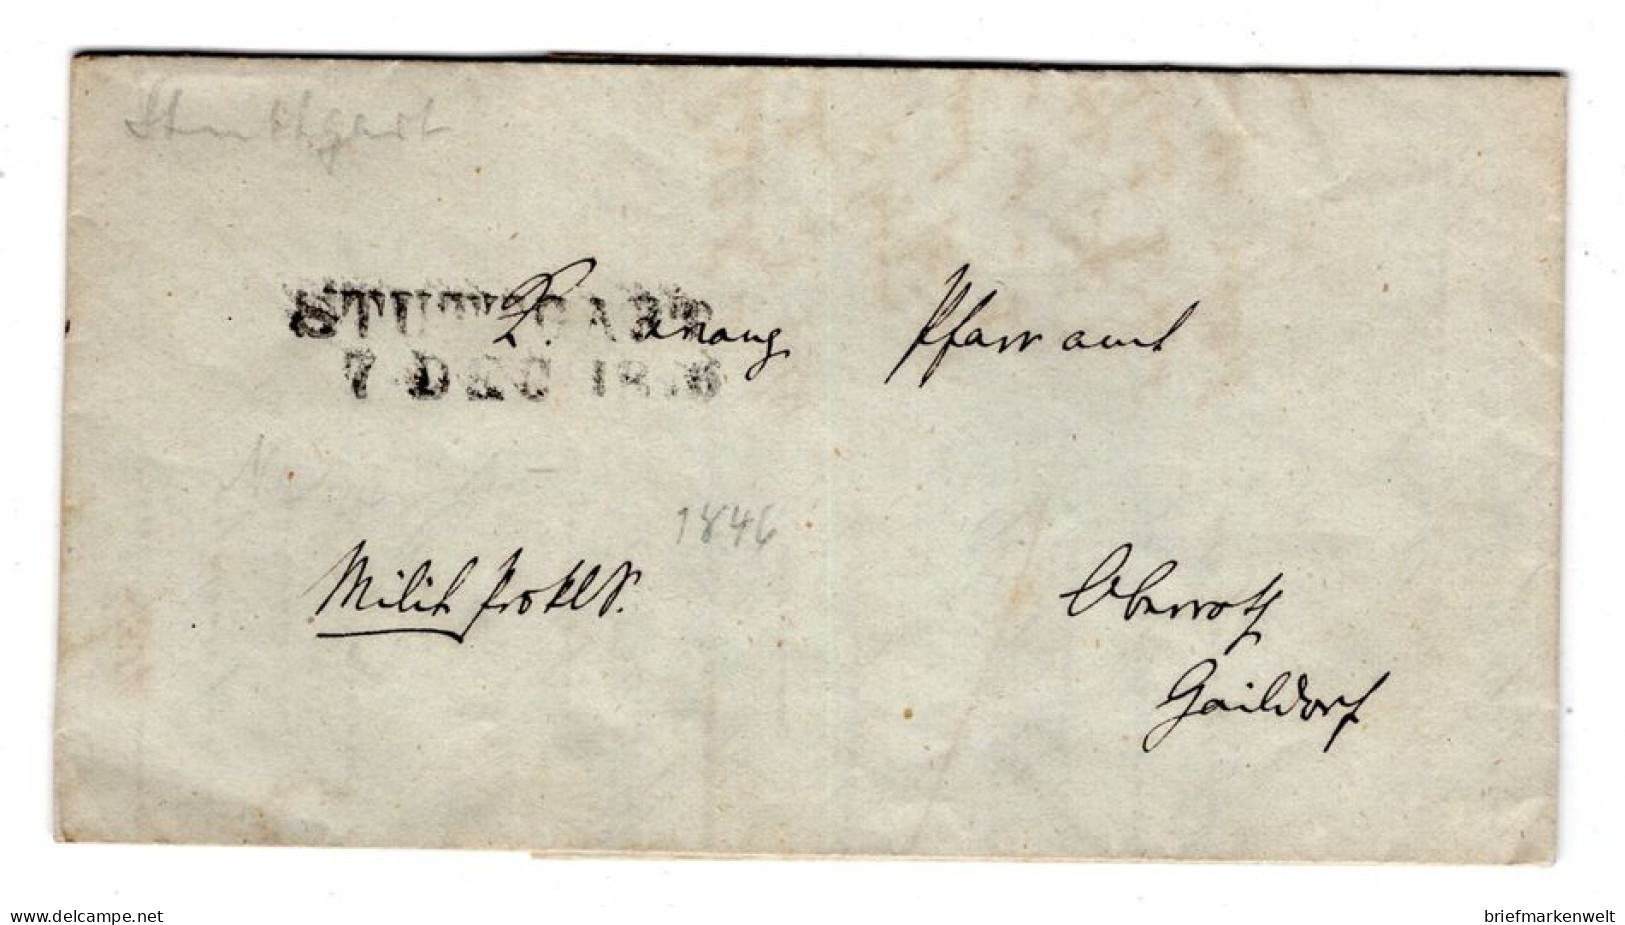 Stuttgart
STUTTGART
7 DEC 1846
K. evang Pfarramt
1846
Milit
Oberroth
Gaildorf
delcampe.net
briefmarkenwelt